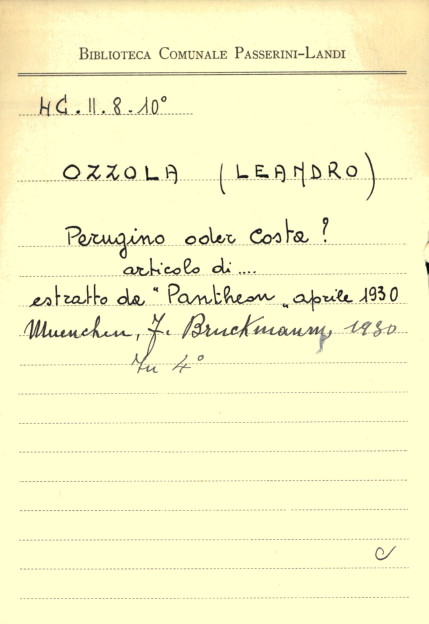 BIBLIOTECA COMUNALE PASSERINI-LANDI
4C.II.8.10°
OZZOLA (LEANDRO)
Perugino oder Costa?
articolo di....
estratto da "Pantheon„ aprile 1930
Muenchen, F. Bruckmann, 1930
In 4°